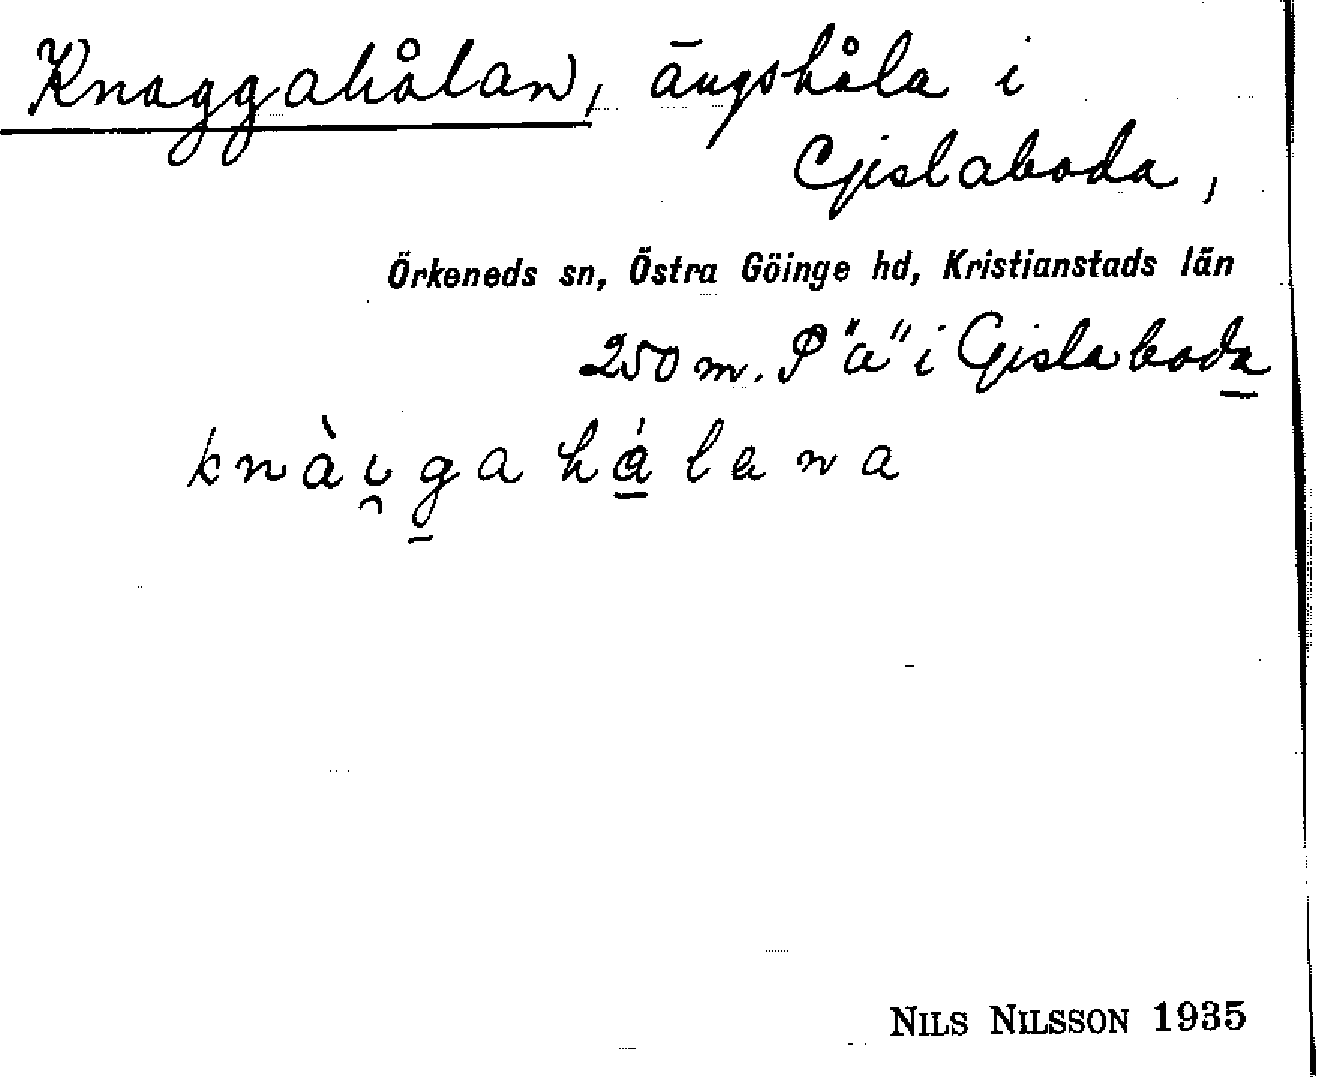 Knaggahålan, ängshåla i
Gislaboda,
Örkeneds sn, Östra Göinge hd, Kristianstads län
250 m. P "a" i Gislaboda
knàigahålana
NILS NILSSON 1935